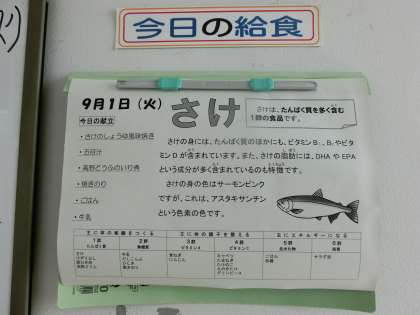 今日の給食
9月1日（火）
さけ
さけは、たんぱく質を多く含む
1群の食品です。
今日の献立
・さけのしょうゆ風味焼き
・五目汁
・高野どうふのいり煮
・焼きのり
・ごはん
・牛乳
さけの身には、たんぱく質のほかにも、ビタミンB₁、B₂やビタ
ミンDが含まれています。また、さけの脂肪には、DHAやEPA
という成分が多く含まれているのも特徴です。
さけの身の色はサーモンピンク
ですが、これは、アスタキサンチン
という色素の色です。
主に体の組織をつくる
主に体の調子を整える
主にエネルギーになる
1群 2群 3群 4群 5群 6群